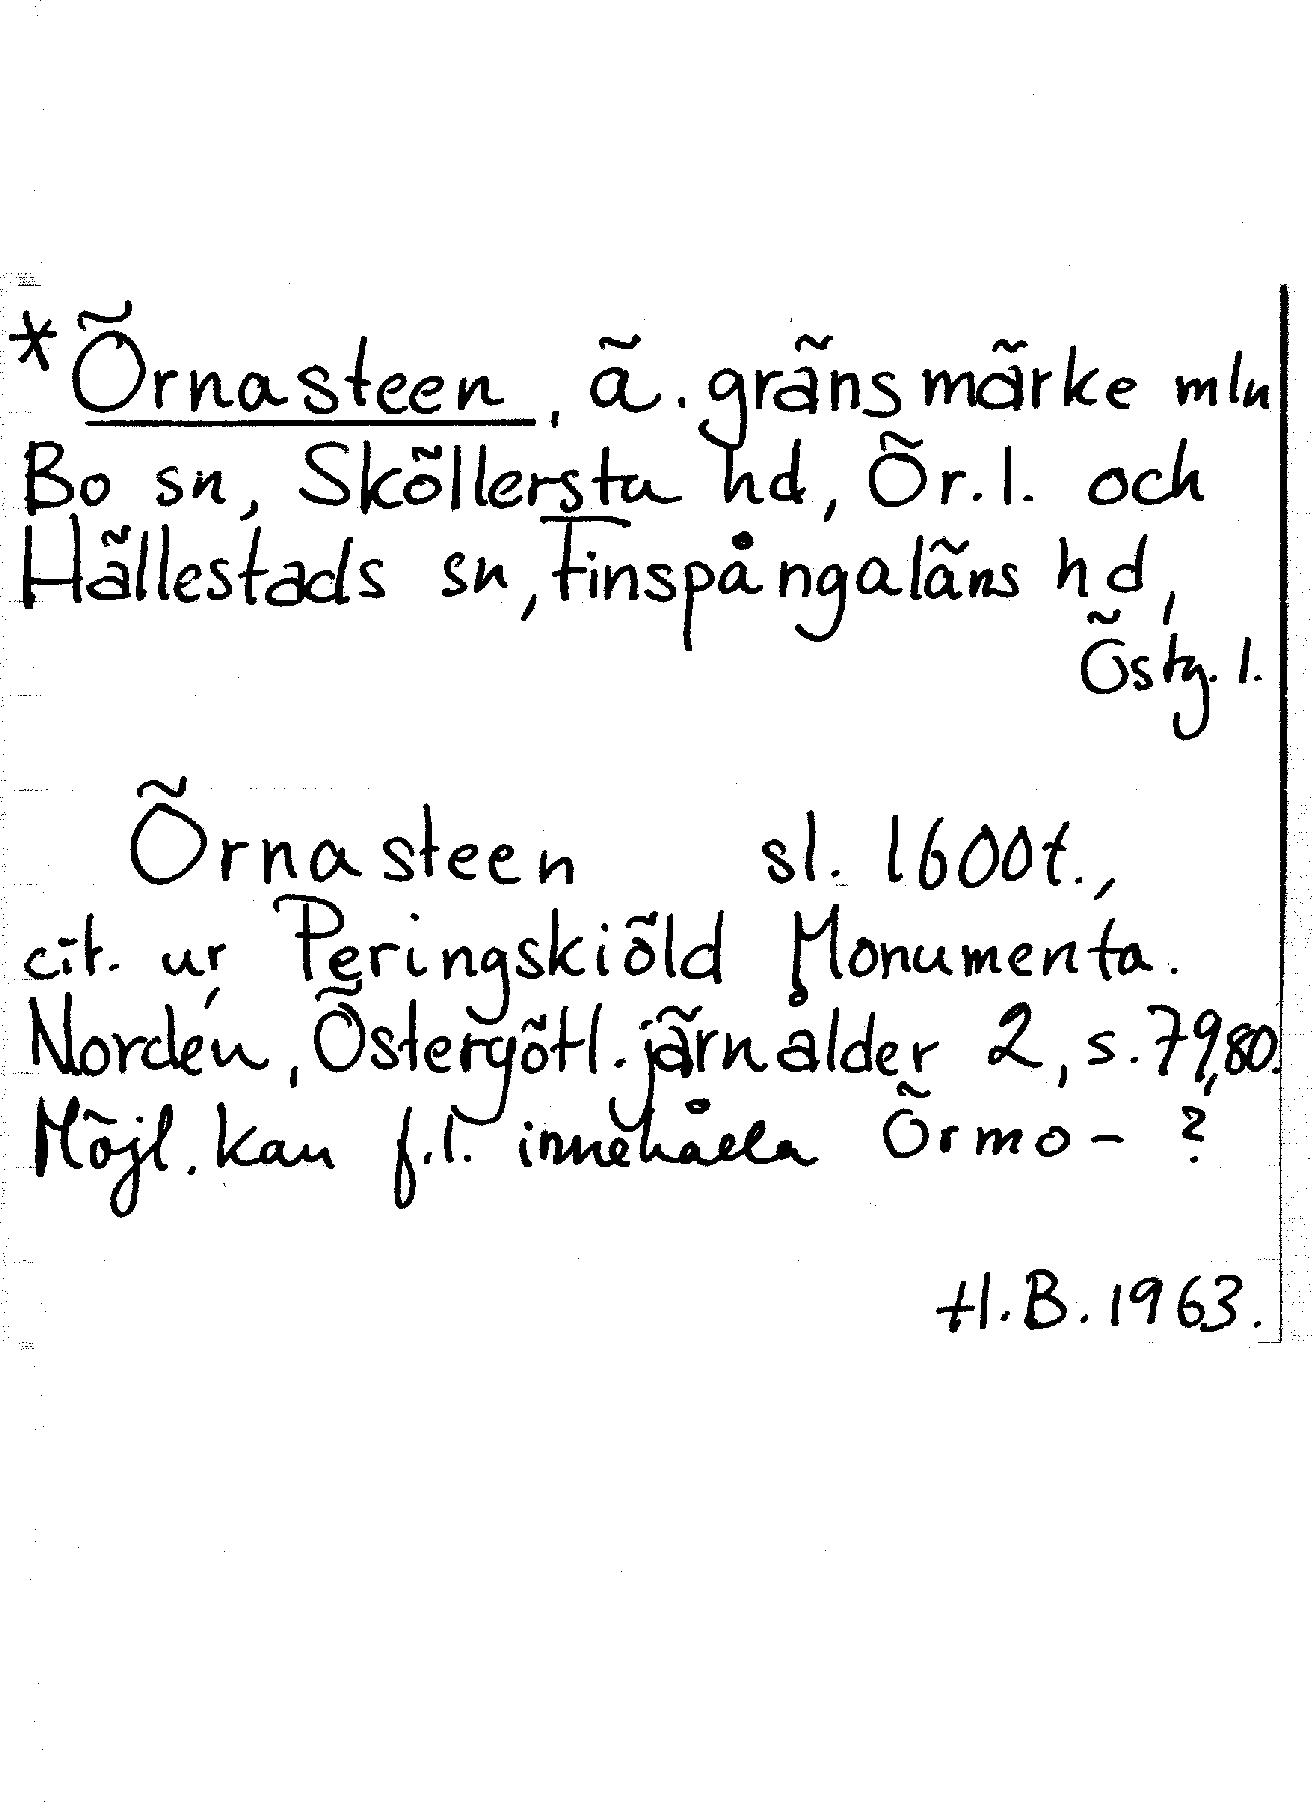 *Örnasteen, ä. gränsmärke mln
Bo sn, Sköllersta hd, Ör. l. och
Hällestads sn, Finspångaläns hd,
Östg. l.
Örnasteen sl. 1600t.,
cit. ur Peringskiöld Monumenta.
Nordén, Östergötl. järnålder 2, s. 79,80.
Möjl. kan f.l. innehålla Örmo- ?
H.B. 1963.